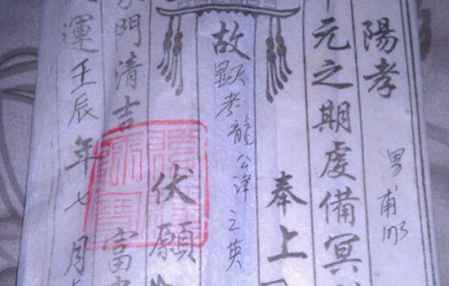 陽孝 男甫
元之期虔備冥
奉上
故顯考龍公 之英
伏願
門清吉 富
運壬辰年七月